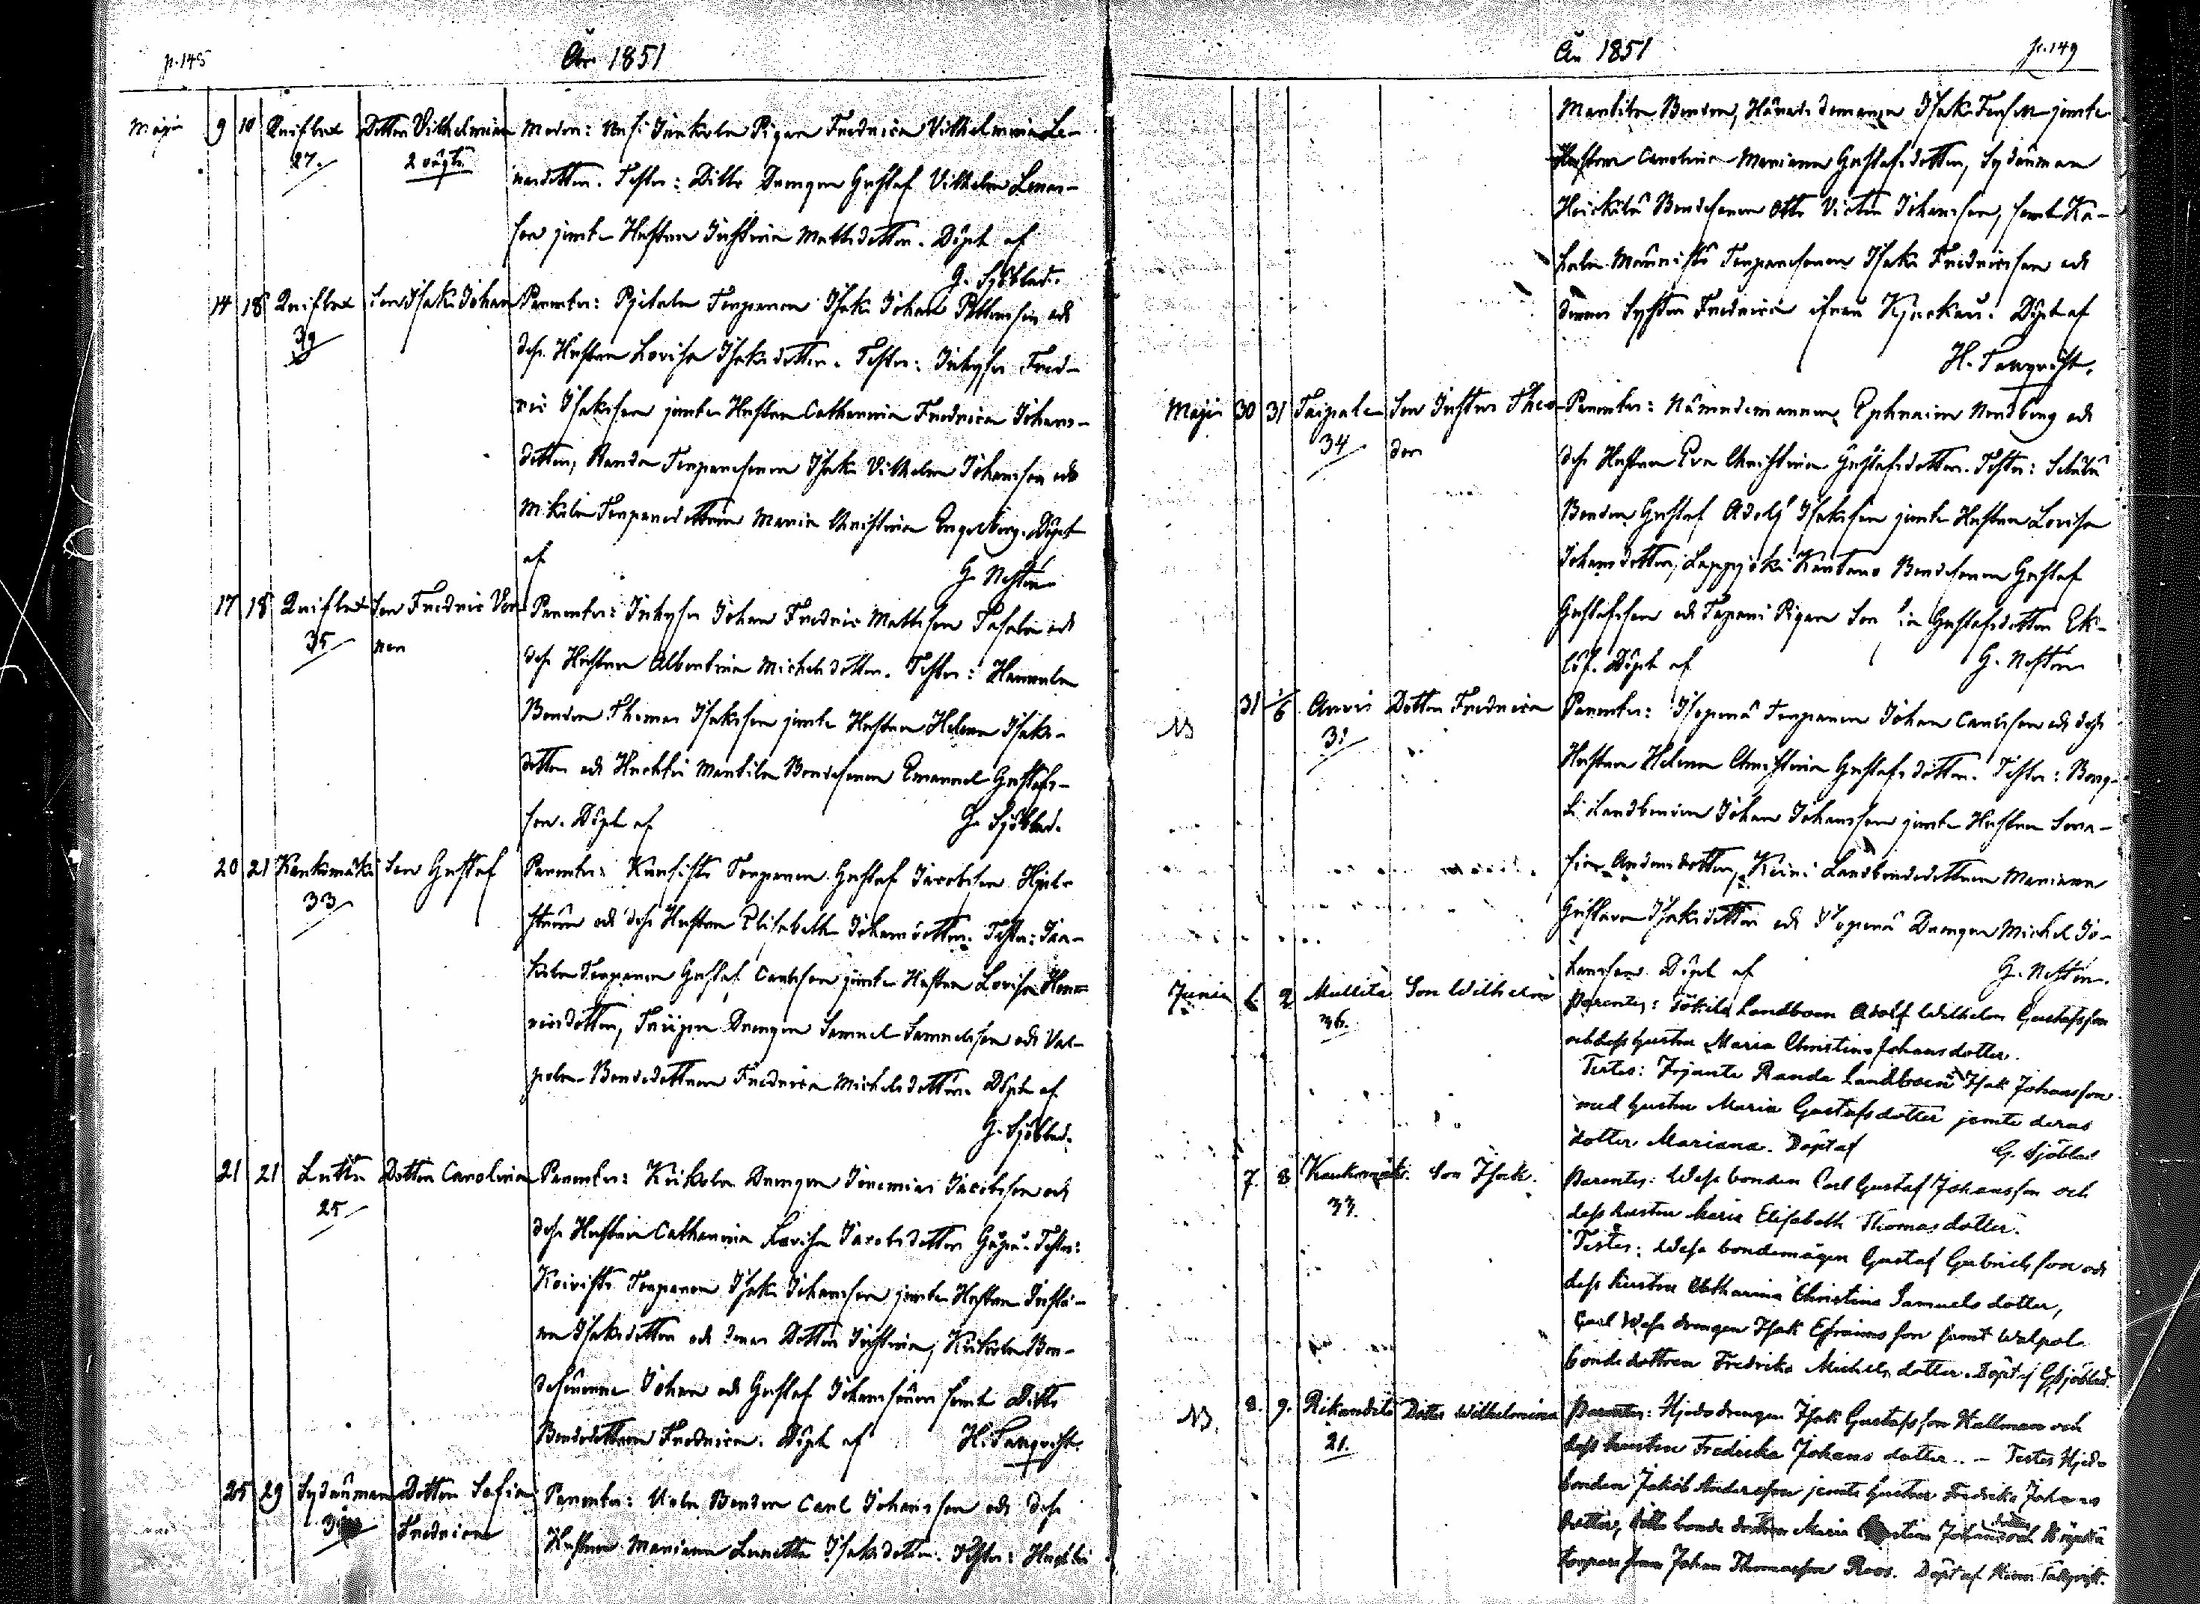 p. 145
År 1851
Maji 9 10 Qviflax Dotter Vilhelmina Modren: Ussi Junkola Pigan Fredrica Vilhelmina Le-
27. 2 oägta
narsdotter. Testes: Ditto Drengen Gustaf Vilhelm Lenar-
son jemte Hustrun Justina Mattsdotter. Döpt af
G. Sjöblad.
14 18 Qviflax Son Isak Johan Parentes: Torparen Isak Johan och
39
dess Hustru Lovisa Isaksdotter. Testes: Inhyses Fred-
ric Isaksson jemte Hustrun Catharina Fredrica Johans-
dotter, Randa Torparesonen Isak Vilhelm Johansson och
Mikola Torparedottren Maria Christina Engelberg. Döpt
af
G. Nostén
17 18 Qviflax Son Fredric Ver- Parentes: Inhyses Johan Fredric Mattsson och
35 ner
dess Hustrun Albertina Michelsdotter. Testes: Hannula
Bonden Thomas Isaksson jemte Hustrun Helena Isaks-
dotter och Huchti Mantila Bondesonen Emanuel Gustafs-
son. Döpt af G. Sjöblad.
20 21 Kanksmäki Son Gustaf Parentes: Torparen Gustaf Jacobsson Hjel-
33
ström och dess Hustrun Elisabeth Johansdotter. Testes:
Torparen Gustaf Carlsson jemte Hustrun Lovisa Hen-
ricsdotter, Drengen Samuel Samuelsson och Val-
pola Bondedottren Fredrica Michelsdotter. Döpt af
G. Sjöblad.
21 21 Luttu Dotter Carolina Parentes: Kukola Drengen Jeremias Jacobsson och
25
dess Hustrun Catharina Lovisa Jacobsdotter Testes:
Koivisto Torparen Isak Johansson jemte Hustrun Justi-
na Isaksdotter och deras Dotter Justina, Kukola Bon-
desönerne Johan och Gustaf Johanssöner samt Ditto
Bondedottren Fredrica. Döpt af H. Tanqvist.
25 29 Sydänmaa Dotter Sofia Parentes: Uola Bonden Carl Johansson och dess
Fredrica
Hustrun Mariana Lenetta Isaksdotter. Testes: Huchti
År 1851
p. 149
Mantila Bonden, Häradsdomaren Isak jemte
Hustrun Carolina Mariana Gustafsdotter, Sydänmaa
Heickilä Bondesonen Otto Victor Johansson, samt
Männistö Torparesonen Isak Fredricsson och
dennes Syster Fredrica ifrån Kjuckari. Döpt af
H. Tanqvist.
Maji 30 31 Taipale Son Justus Theo- Parentes: Nämndemannen Ephraim Nordberg och
34 dor
dess Hustrun Eva Christina Gustafsdotter. Testes:
Bonden Gustaf Adolf Isaksson jemte Hustrun Lovisa
Johansdotter, Lappijoki Kantano Bondesonen Gustaf
Gustafsson och Tapani Pigan Gustafsdotter Ek-
löf. Döpt af G. Nostén
NB 31 1/6 Arvis Dotter Fredrica Parentes: Isoperä Torparen Johan Carlsson och dess
31
Hustrun Helena Christina Gustafsdotter. Testes:
Landbonden Johan Johansson jemte Hustrun Sera-
fia Andersdotter, Keini Landbondedottren Mariana
Gustava Isaksdotter och Isoperä Drengen Michel Jo-
hansson. Döpt af G. Nostén.
Junii 6 9 Mullila Son Wilhelm Parentes: Jökilä Landboen Adolf Wilhelm Gustafsson
36.
och dess hustru Maria Christina Johansdotter.
Testes: Randa Landboen Isak Johansson
med hustru Maria Gustafsdotter jemte deras
dotter Mariana. Döpt af G. Sjöblad
7. 8 Kanksmäki. Son Isak. Parentes: Wesa bonden Carl Gustaf Johansson och
33.
dess hustru Maria Elisabeth Thomasdotter.
Testes: Wesa bondemågen Gustaf Gabrielsson och
dess hustru Catharina Christina Samuelsdotter,
Carl Wesa drengen Isak Efraimsson samt Walpola
bondedottren Fredrika Michelsdotter. Döpt af G. Sjöblad.
NB. 8. 9. Rikandilä Dotter Wilhelmina Parentes: Hjedo drengen Isak Gustafsson Hallman och
21.
dess hustru Fredrika Johansdotter. — Testes Hjedo
bonden Jakob Andersson jemte hustru Fredrika Johans
dotter, ditto bonde dottren Maria Johansdotter och
torparesonen Johan Thomasson Roos. Döpt af